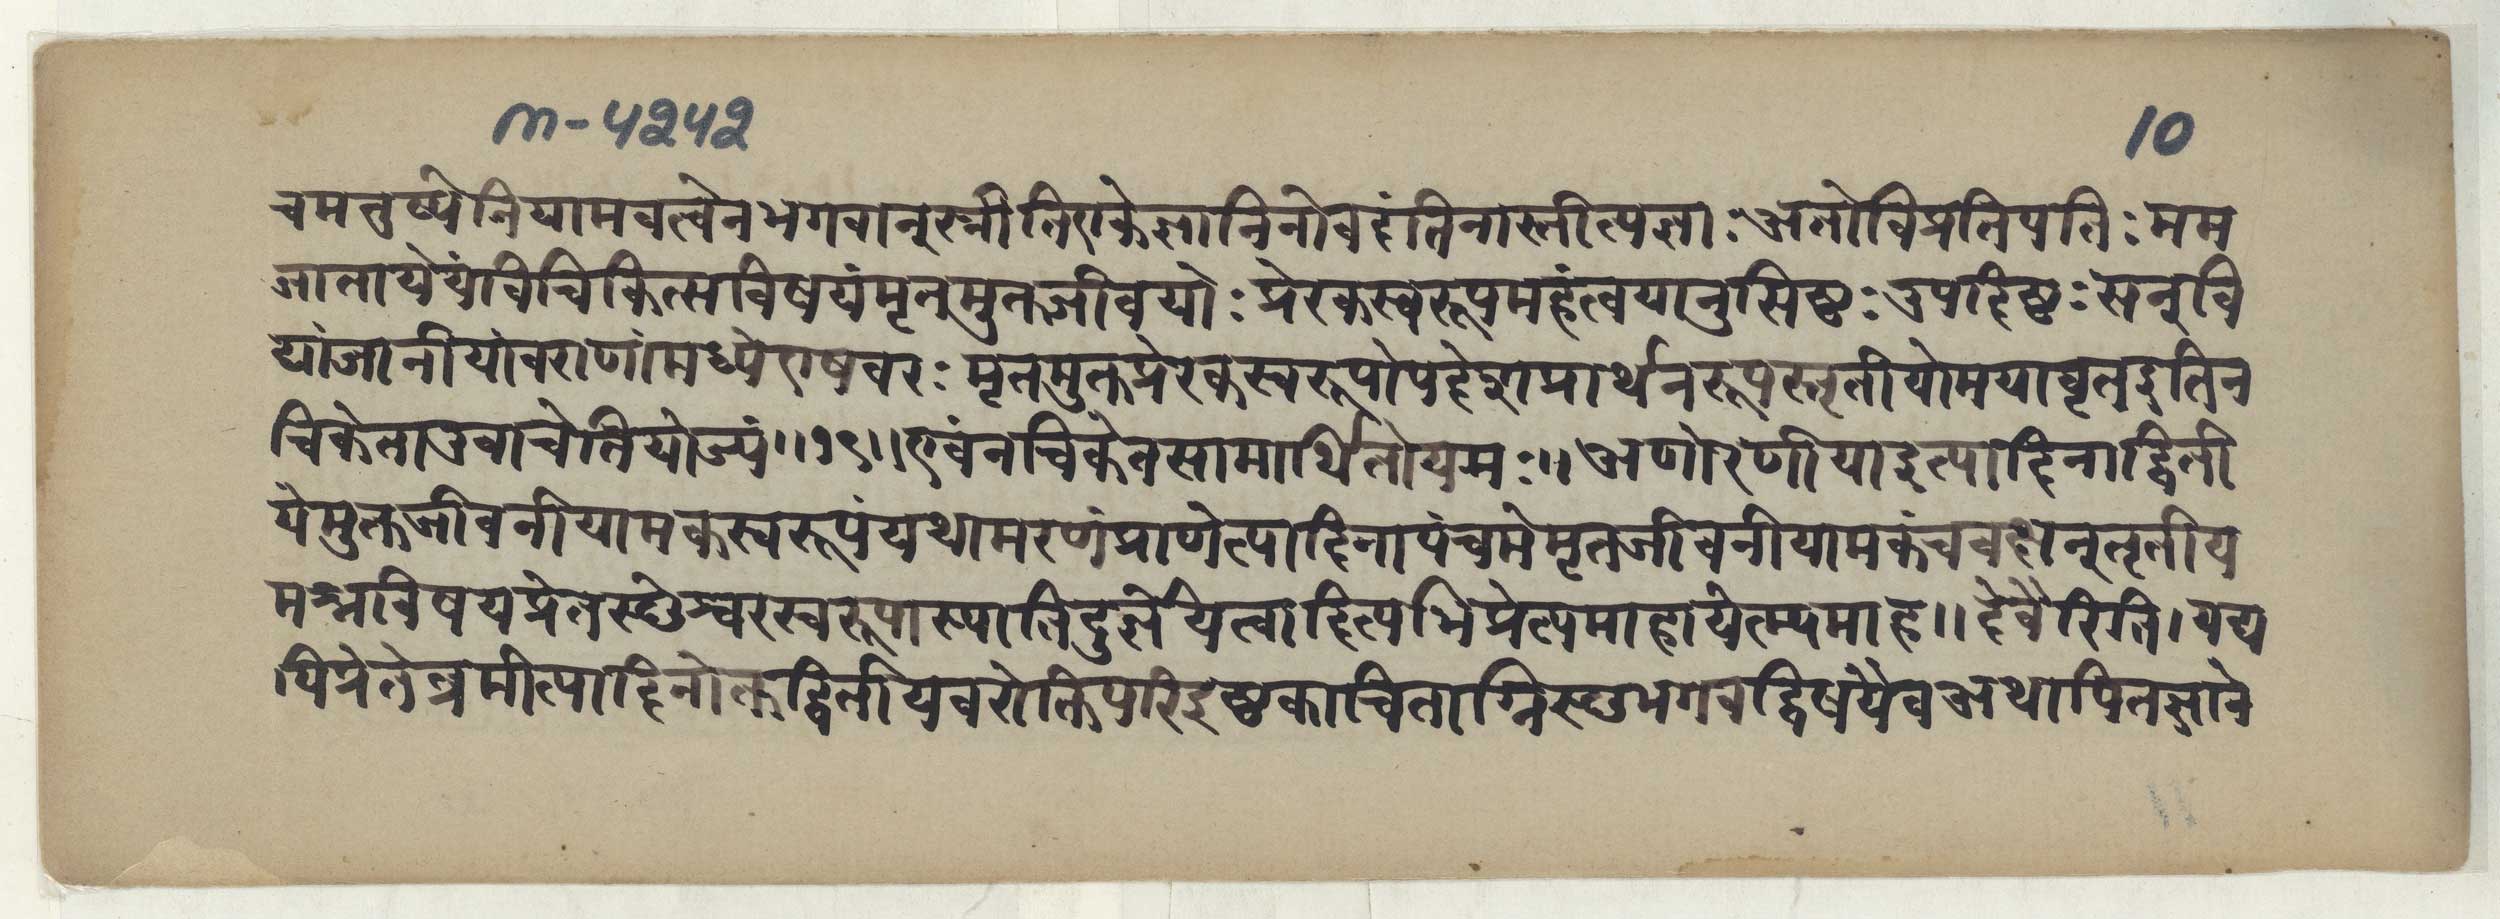 m-५२५२
10
चमनुष्येनियामवत्वेनभगवानस्तीतिएकेज्ञानिनोवदंतिनास्तीत्यज्ञाः अतोविप्रतिपतिः मम
ज्ञातायेयंविचिकित्सविषयंमृतमुतजीवयोः प्रेरकस्वरूपमहंत्वयानुसिष्टः उपदिष्टः सन्वि
द्यांजानीयांवराणांमध्येएषवरः मृतमुक्तप्रेरकस्वरूपोपदेशप्रार्थनरूपस्तृतीयोमयावृतइतिन
चिकेताउवाचेतियोज्यं॥१९॥एवंनचिकेतसामार्थितोयमः॥ अणोरणीयाइत्यादिनाद्विती
येमुक्तजीवनीयामकस्वरूपंयथामरणंप्राणेत्यादिनापंचमेमृतजीवनीयामकंचवक्षन्तृतीय
मश्नविषयप्रेतस्छेश्वरस्वरूपास्यातिदुर्ज्ञेयित्वादित्यभिप्रेत्यमाहायेत्म्यमाह॥देवैरिति।यद्य
पिप्रेतेन्रमीत्यादिनोक्तद्वितीयवरोक्तिपरिइष्टकाचिताग्निस्छभगवद्विषयैवअथापितज्ञाने
11